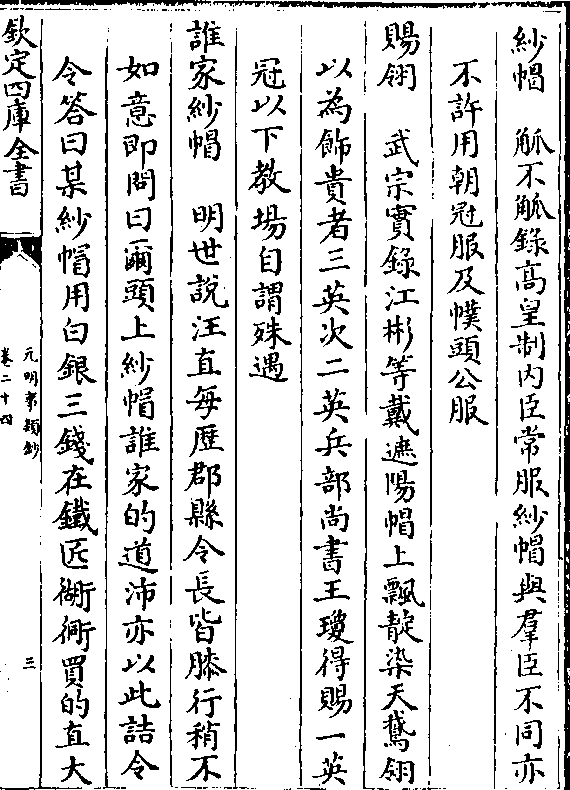 紗帽　觚不觚錄髙皇制内臣常服紗帽與羣臣不同亦
不許用朝冠服及幞頭公服
賜翎　武宗實錄江彬等戴遮陽帽上飄靛染天鵞翎
以為飾貴者三英次二英兵部尚書王瓊得賜一英
冠以下教場自謂殊遇
誰家紗帽　明世説汪直每歴郡縣令長皆膝行稍不
如意即問曰爾頭上紗帽誰家的道沛亦以此詰令
令答曰某紗帽用白銀三錢在鐵匠衚衕買的直大
欽定四庫全書
元明事類鈔
卷二十四
三